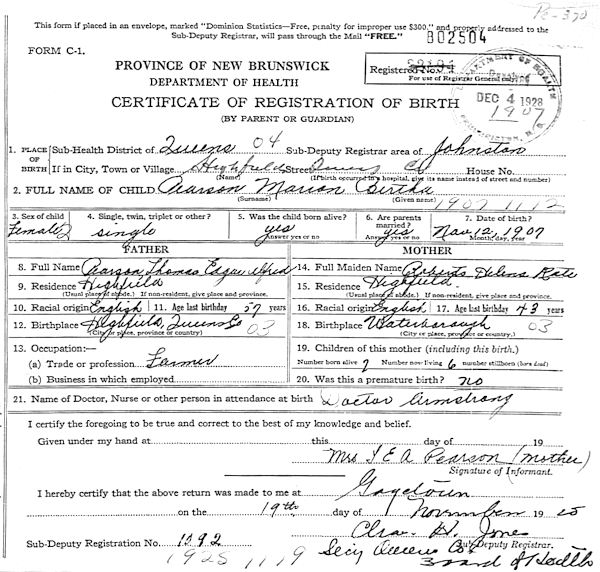 Pc-370
This form if placed in an envelope, marked "Dominion Statistics—Free, penalty for improper use $300," and properly addressed to the
Sub-Deputy Registrar, will pass through the Mail "FREE."
802504
FORM C-1.
PROVINCE OF NEW BRUNSWICK
DEPARTMENT OF HEALTH
Registered No.
For use of Registrar General only
DEPARTMENT OF HEALTH
DEC 4 1928
1907
CERTIFICATE OF REGISTRATION OF BIRTH
(BY PARENT OR GUARDIAN)
1. PLACE OF BIRTH Sub-Health District of Queens 04 Sub-Deputy Registrar area of Johnston
If in City, Town or Village Highfield Street Queens Co House No.
(Name) (If birth occurred in a hospital, give its name instead of street and number)
2. FULL NAME OF CHILD Pearson Marion Bertha
(Surname) (Given name) 1907 11 12
3. Sex of child 4. Single, twin, triplet or other? 5. Was the child born alive? 6. Are parents married? 7. Date of birth?
Female 2 single yes yes Nov, 12, 1907
Answer yes or no Answer yes or no Month, day, year
FATHER MOTHER
8. Full Name Pearson, Thomas Edgar Alfred 14. Full Maiden Name Roberts, Helena Kate
9. Residence Highfield 15. Residence Highfield.
(Usual place of abode.) If non-resident, give place and province. (Usual place of abode.) If non-resident, give place and province.
10. Racial origin English 11. Age last birthday 57 years 16. Racial origin English 17. Age last birthday 43 years
12. Birthplace Highfield, Queens Co 03 18. Birthplace Waterborough 03
(City or place, province or country.) (City or place, province or country.)
13. Occupation:— 19. Children of this mother (including this birth.)
(a) Trade or profession Farmer Number born alive 7 Number now living 6 number stillborn (born dead)
(b) Business in which employed 20. Was this a premature birth? no
21. Name of Doctor, Nurse or other person in attendance at birth Doctor Armstrong
I certify the foregoing to be true and correct to the best of my knowledge and belief.
Given under my hand at this day of 19
Mrs T E A Pearson (mother)
Signature of Informant.
I hereby certify that the above return was made to me at Gagetown
on the 19th day of November 19 25
Chas. H. Jones
Sub-Deputy Registration No. 1392 Sub-Deputy Registrar.
1925 11 19 Secy Queens Co. Board of Health